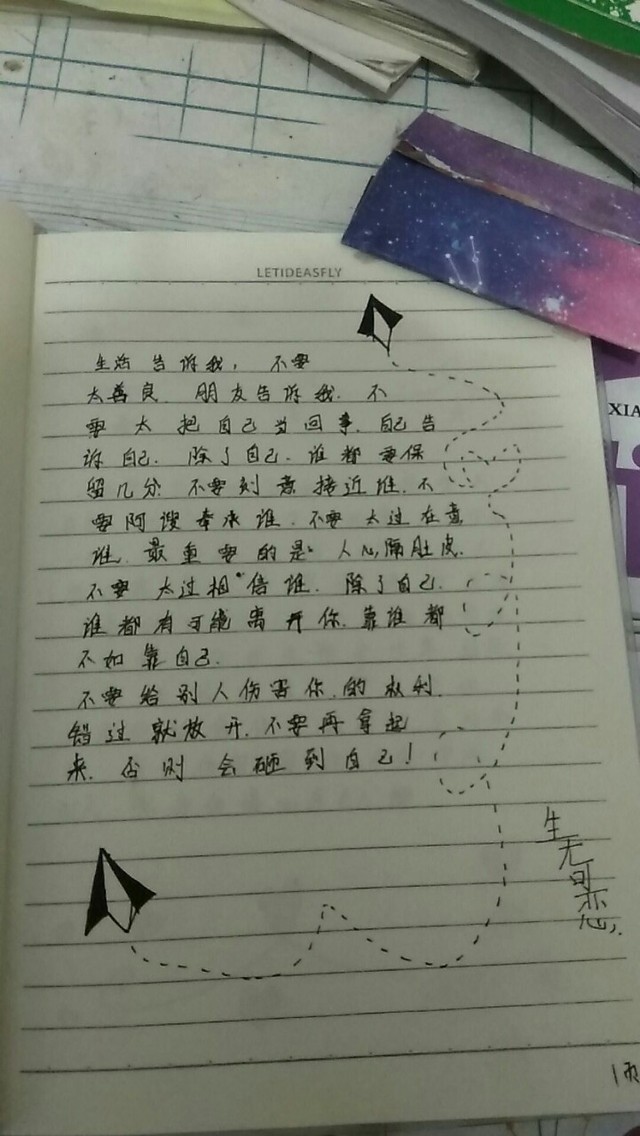 LETIDEASFLY
XIA
生活告诉我, 不要
太善良. 朋友告诉我. 不
要太把自己当回事. 自己告
诉自己. 除了自己. 谁都要保
留几分 不要刻意接近谁. 不
要阿谀奉承谁. 不要太过在意
谁. 最重要的是。人心隔肚皮.
不要太过相信谁. 除了自己.
谁都有可能离开你. 靠谁都
不如靠自己.
不要给别人伤害你的权利.
错过就放开. 不要再拿起
来. 否则会砸到自己!
生无可恋.